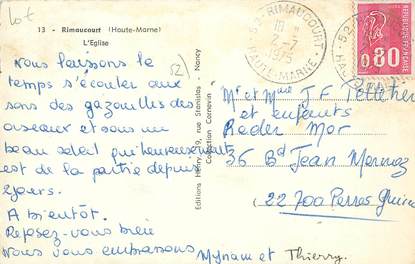 Lot
13 - Rimaucourt (Haute-Marne)
L'Eglise
Nous laissons le
temps s'écouler aux
sons des gazouillis des
oiseaux et sous un
beau soleil qui heureusement
est de la partie depuis
jours.
A bientôt.
Reposez-vous bien
Nous vous embrassons
Mynam et Thierry.
52)
Editions Henry, 39, rue Stanislas - Nancy
Collection Carnevali
52-RIMAUCOURT
-7
1975
HAUTE-MARNE
REPUBLIQUE FRANCAISE
0,80
Mr et Mme J F Pelletier
et enfants
Reder Mor
36 Bd Jean Mermoz
22700 Perros Guirec